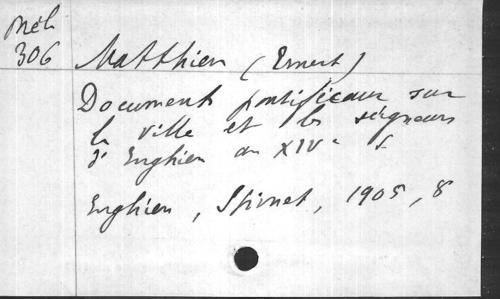 Mél
306
Matthieu (Ernest)
Documents pontificaux sur
la ville et les seigneurs
d'Enghien au XIVe s
Enghien, Spinet, 1905, 8